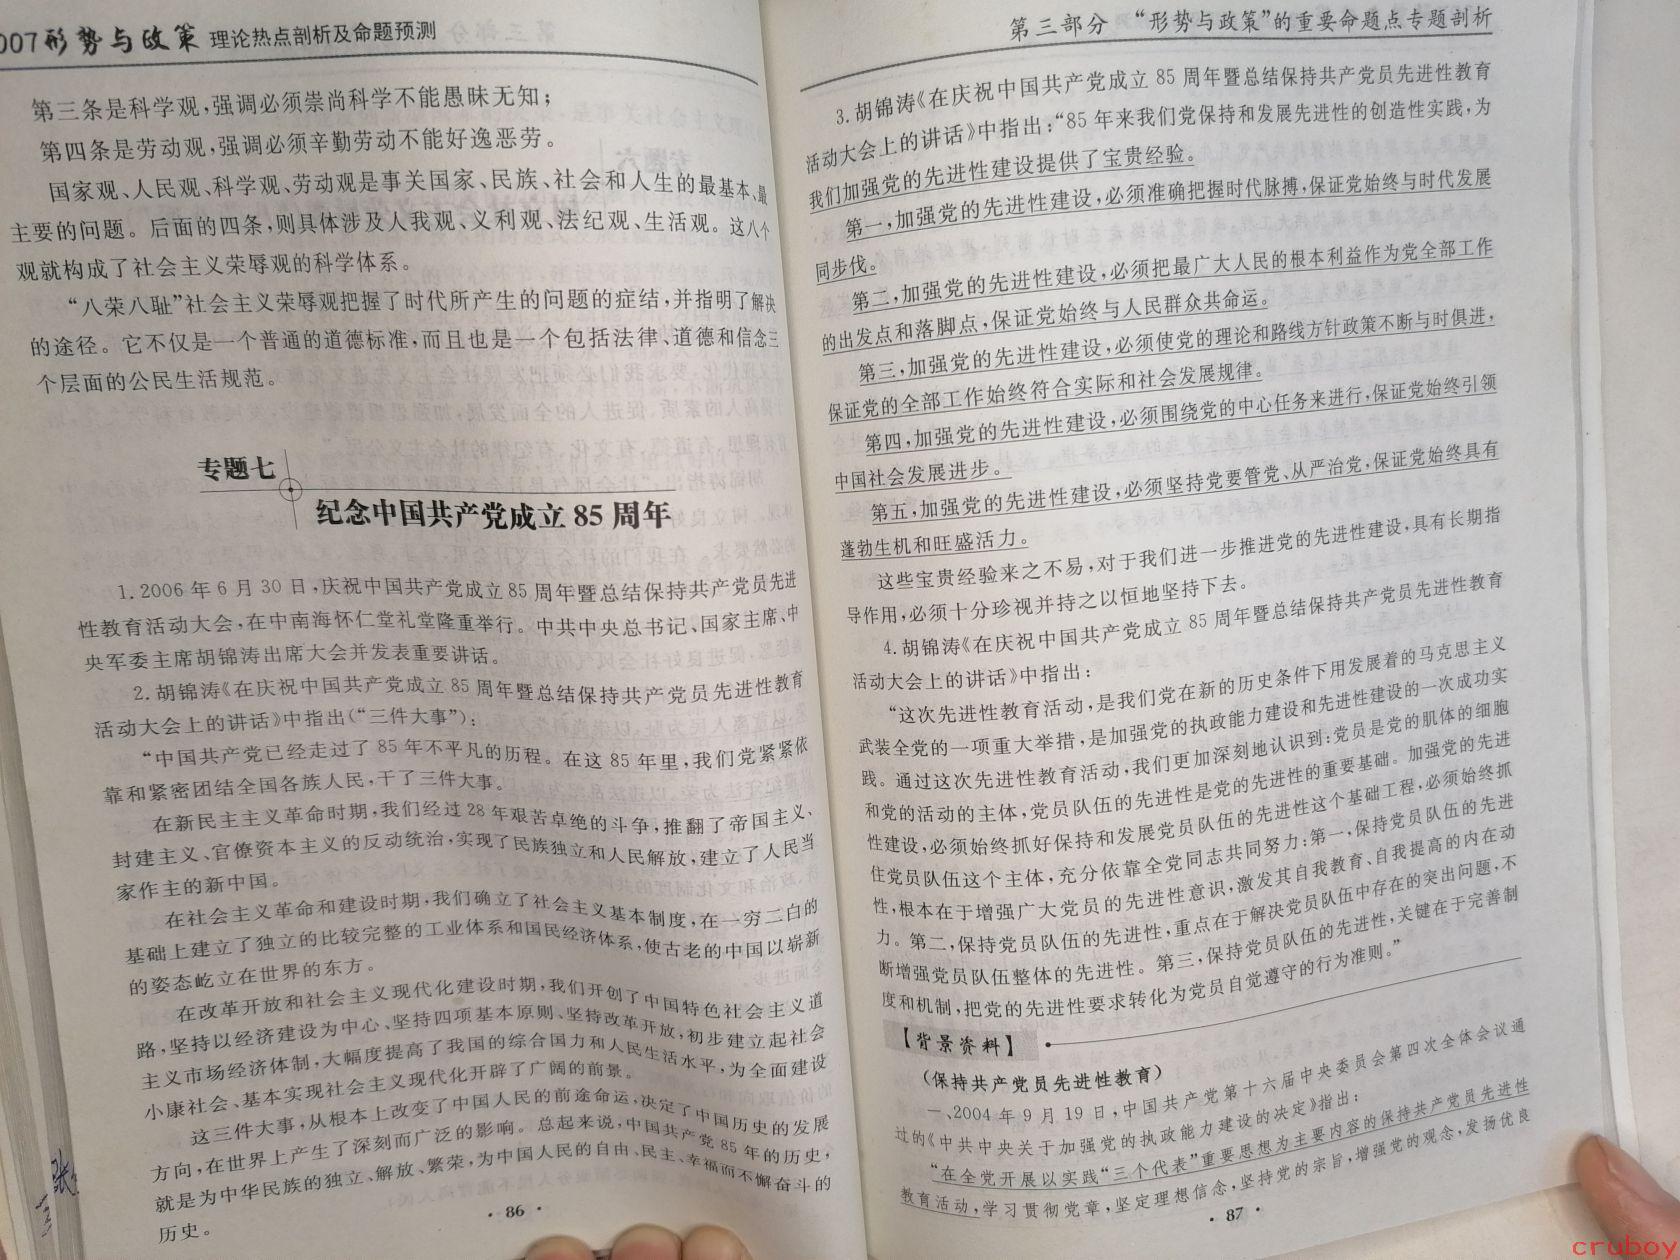 007形势与政策 理论热点剖析及命题预测
第三条是科学观,强调必须崇尚科学不能愚昧无知;
第四条是劳动观,强调必须辛勤劳动不能好逸恶劳。
国家观、人民观、科学观、劳动观是事关国家、民族、社会和人生的最基本、最
主要的问题。后面的四条,则具体涉及人我观、义利观、法纪观、生活观。这八个
观就构成了社会主义荣辱观的科学体系。
“八荣八耻”社会主义荣辱观把握了时代所产生的问题的症结,并指明了解决
的途径。它不仅是一个普通的道德标准,而且也是一个包括法律、道德和信念三
个层面的公民生活规范。
专题七
纪念中国共产党成立85周年
1.2006年6月30日,庆祝中国共产党成立85周年暨总结保持共产党员先进
性教育活动大会,在中南海怀仁堂礼堂隆重举行。中共中央总书记、国家主席、中
央军委主席胡锦涛出席大会并发表重要讲话。
2.胡锦涛《在庆祝中国共产党成立85周年暨总结保持共产党员先进性教育
活动大会上的讲话》中指出(“三件大事”):
“中国共产党已经走过了85年不平凡的历程。在这85年里,我们党紧紧依
靠和紧密团结全国各族人民,干了三件大事。
在新民主主义革命时期,我们经过28年艰苦卓绝的斗争,推翻了帝国主义、
封建主义、官僚资本主义的反动统治,实现了民族独立和人民解放,建立了人民当
家作主的新中国。
在社会主义革命和建设时期,我们确立了社会主义基本制度,在一穷二白的
基础上建立了独立的比较完整的工业体系和国民经济体系,使古老的中国以崭新
的姿态屹立在世界的东方。
在改革开放和社会主义现代化建设时期,我们开创了中国特色社会主义道
路,坚持以经济建设为中心、坚持四项基本原则、坚持改革开放,初步建立起社会
主义市场经济体制,大幅度提高了我国的综合国力和人民生活水平,为全面建设
小康社会、基本实现社会主义现代化开辟了广阔的前景。
这三件大事,从根本上改变了中国人民的前途命运,决定了中国历史的发展
方向,在世界上产生了深刻而广泛的影响。总起来说,中国共产党85年的历史,
就是为中华民族的独立、解放、繁荣,为中国人民的自由、民主、幸福而不懈奋斗的
历史。
·86·
第三部分 “形势与政策”的重要命题点专题剖析
3.胡锦涛《在庆祝中国共产党成立85周年暨总结保持共产党员先进性教育
活动大会上的讲话》中指出:“85年来我们党保持和发展先进性的创造性实践,为
我们加强党的先进性建设提供了宝贵经验。
第一,加强党的先进性建设,必须准确把握时代脉搏,保证党始终与时代发展
同步伐。
第二,加强党的先进性建设,必须把最广大人民的根本利益作为党全部工作
的出发点和落脚点,保证党始终与人民群众共命运。
第三,加强党的先进性建设,必须使党的理论和路线方针政策不断与时俱进,
保证党的全部工作始终符合实际和社会发展规律。
第四,加强党的先进性建设,必须围绕党的中心任务来进行,保证党始终引领
中国社会发展进步。
第五,加强党的先进性建设,必须坚持党要管党、从严治党,保证党始终具有
蓬勃生机和旺盛活力。
这些宝贵经验来之不易,对于我们进一步推进党的先进性建设,具有长期指
导作用,必须十分珍视并持之以恒地坚持下去。
4.胡锦涛《在庆祝中国共产党成立85周年暨总结保持共产党员先进性教育
活动大会上的讲话》中指出:
“这次先进性教育活动,是我们党在新的历史条件下用发展着的马克思主义
武装全党的一项重大举措,是加强党的执政能力建设和先进性建设的一次成功实
践。通过这次先进性教育活动,我们更加深刻地认识到:党员是党的肌体的细胞
和党的活动的主体,党员队伍的先进性是党的先进性的重要基础。加强党的先进
性建设,必须始终抓好保持和发展党员队伍的先进性这个基础工程,必须始终抓
住党员队伍这个主体,充分依靠全党同志共同努力:第一,保持党员队伍的先进
性,根本在于增强广大党员的先进性意识,激发其自我教育、自我提高的内在动
力。第二,保持党员队伍的先进性,重点在于解决党员队伍中存在的突出问题,不
断增强党员队伍整体的先进性。第三,保持党员队伍的先进性,关键在于完善制
度和机制,把党的先进性要求转化为党员自觉遵守的行为准则。”
【背景资料】
(保持共产党员先进性教育)
一、2004年9月19日,中国共产党第十六届中央委员会第四次全体会议通
过的《中共中央关于加强党的执政能力建设的决定》指出:
“在全党开展以实践“三个代表”重要思想为主要内容的保持共产党员先进性
教育活动,学习贯彻党章,坚定理想信念,坚持党的宗旨,增强党的观念,发扬优良
·87·
cruboy